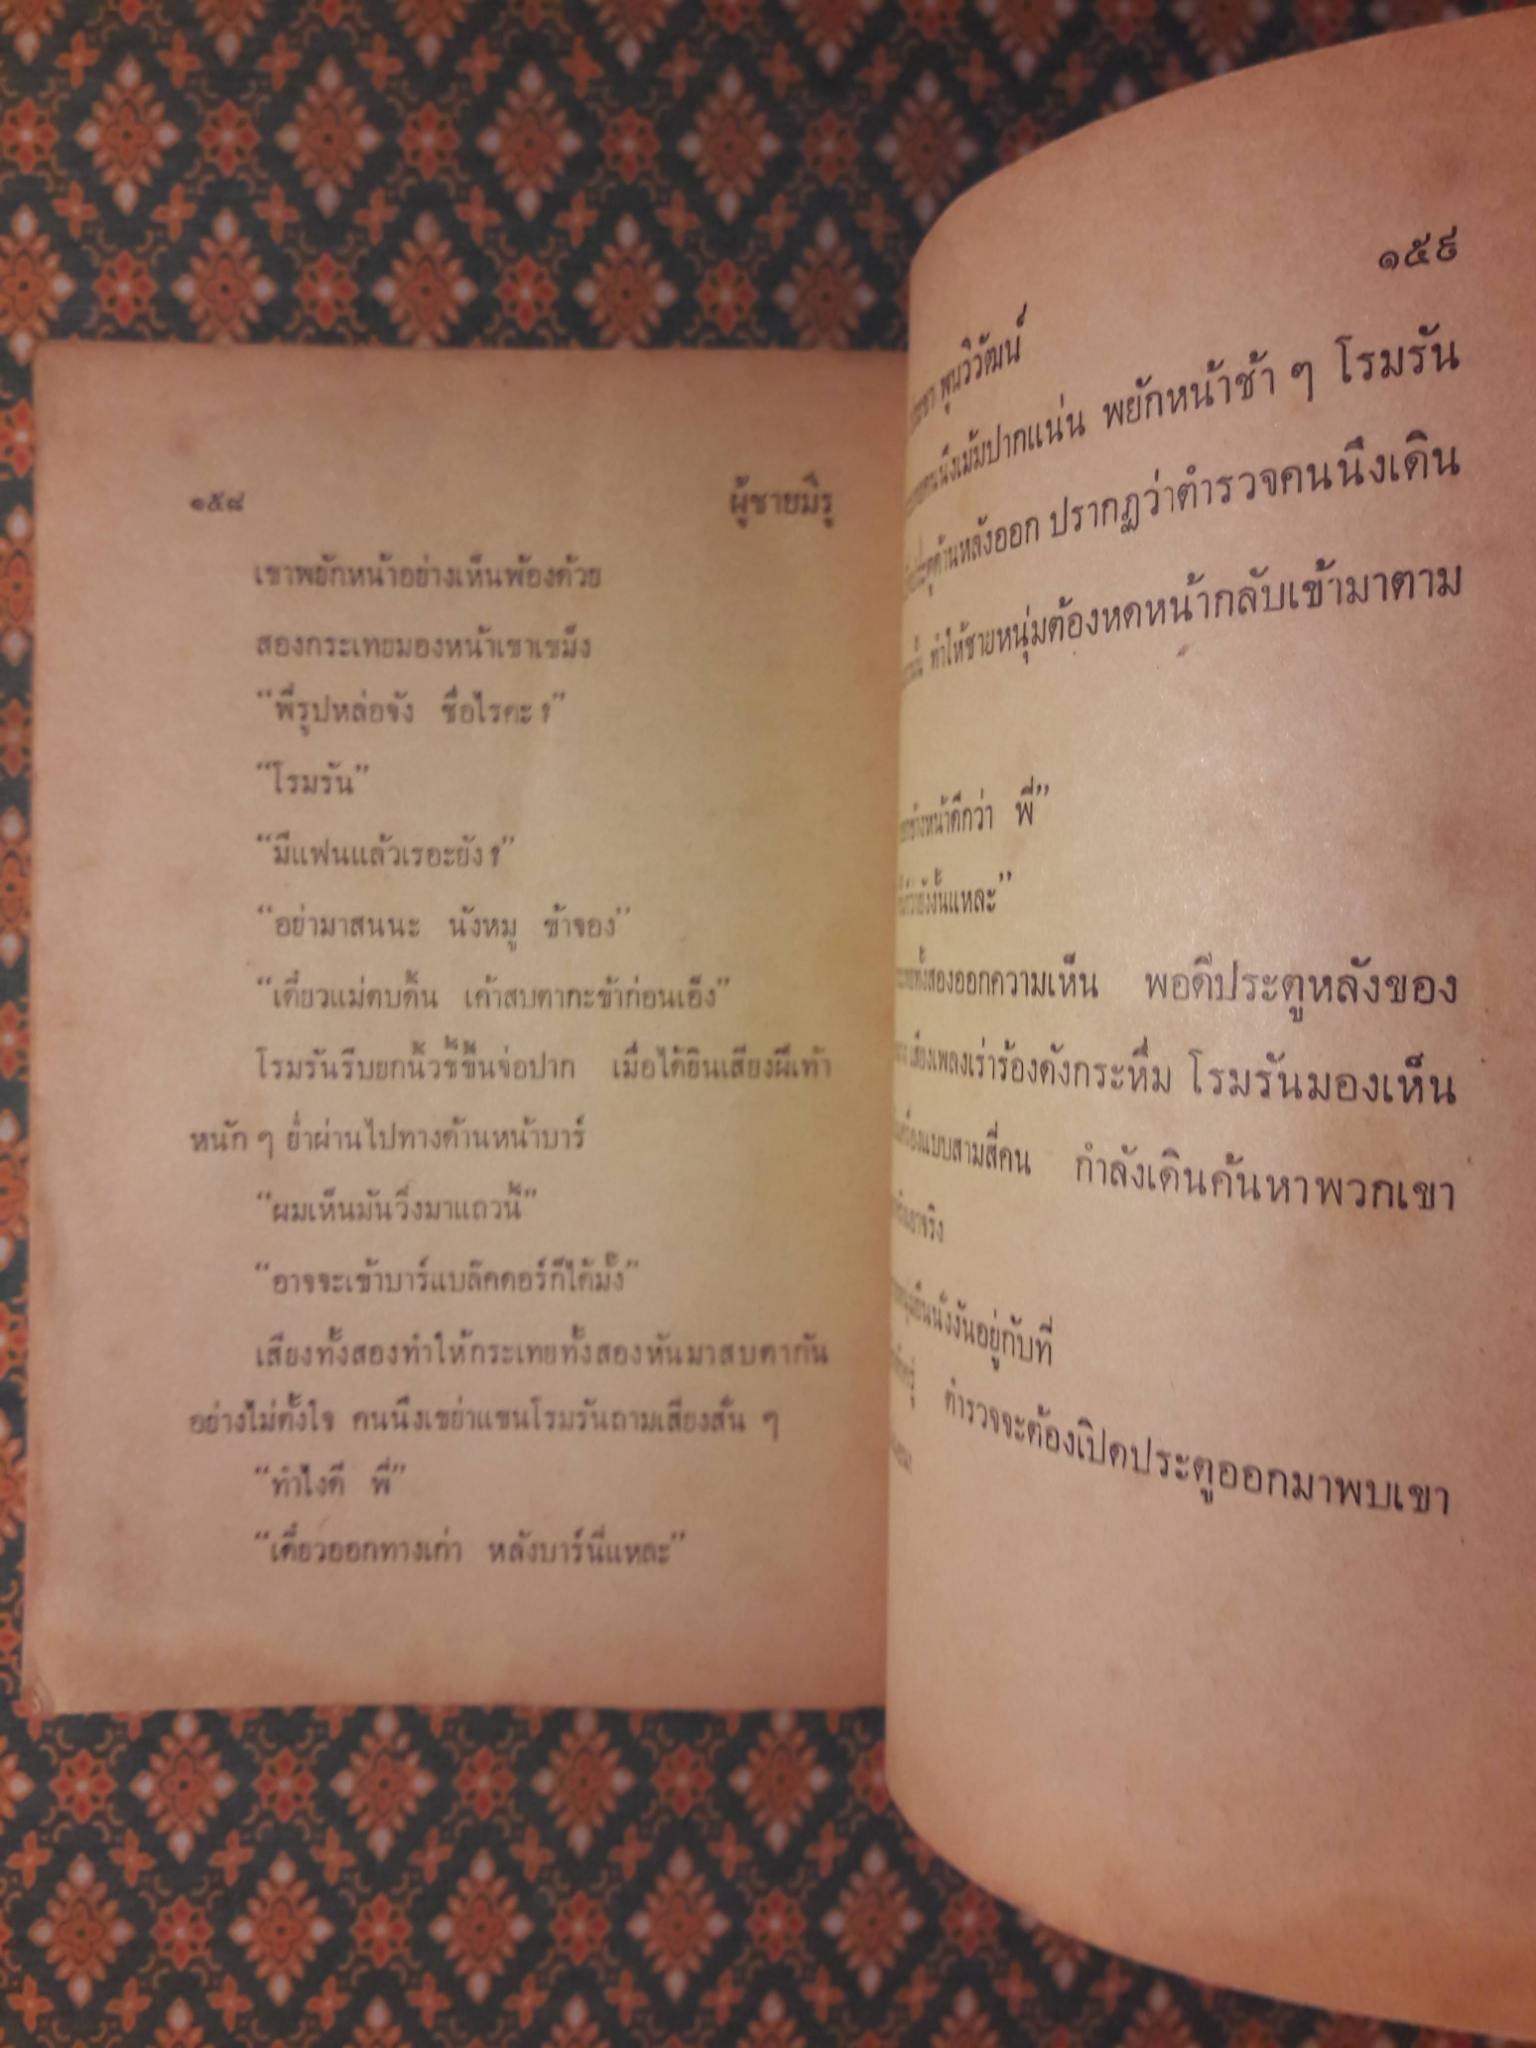 ๑๕๘ ผู้ชายมีรู
เขาพยักหน้าอย่างเห็นพ้องด้วย
สองกระเทยมองหน้าเขาเขม็ง
“พี่รูปหล่อจัง ชื่อไรคะ?”
“โรมรัน”
“มีแฟนแล้วเรอะยัง?”
“อย่ามาสนนะ นังหมู ข้าจอง”
“เดี๋ยวแม่ตบดิ้น เค้าสบตากะข้าก่อนเอ็ง”
โรมรันรีบยกนิ้วชี้ขึ้นจ่อปาก เมื่อได้ยินเสียงฝีเท้า
หนัก ๆ ย่ำผ่านไปทางด้านหน้าบาร์
“ผมเห็นมันวิ่งมาแถวนี้”
“อาจจะเข้าบาร์แบล๊คดอร์ก็ได้มั้ง”
เสียงทั้งสองทำให้กระเทยทั้งสองหันมาสบตากัน
อย่างไม่ตั้งใจ คนนึงเขย่าแขนโรมรันถามเสียงสั่น ๆ
“ทำไงดี พี่”
“เดี๋ยวออกทางเก่า หลังบาร์นี่แหละ”
๑๕๙
พูนวิวัฒน์
คนนึงเม้มปากแน่น พยักหน้าช้า ๆ โรมรัน
ประตูด้านหลังออก ปรากฏว่าตำรวจคนนึงเดิน
ทำให้ชายหนุ่มต้องหดหน้ากลับเข้ามาตาม
ข้างหน้าดีกว่า พี่”
ยังงั้นแหละ”
ทั้งสองออกความเห็น พอดีประตูหลังของ
เสียงเพลงเร่าร้องดังกระหึ่ม โรมรันมองเห็น
เครื่องแบบสามสี่คน กำลังเดินค้นหาพวกเขา
เอาจริง
ยืนนั่งงันอยู่กับที่
ตำรวจจะต้องเปิดประตูออกมาพบเขา